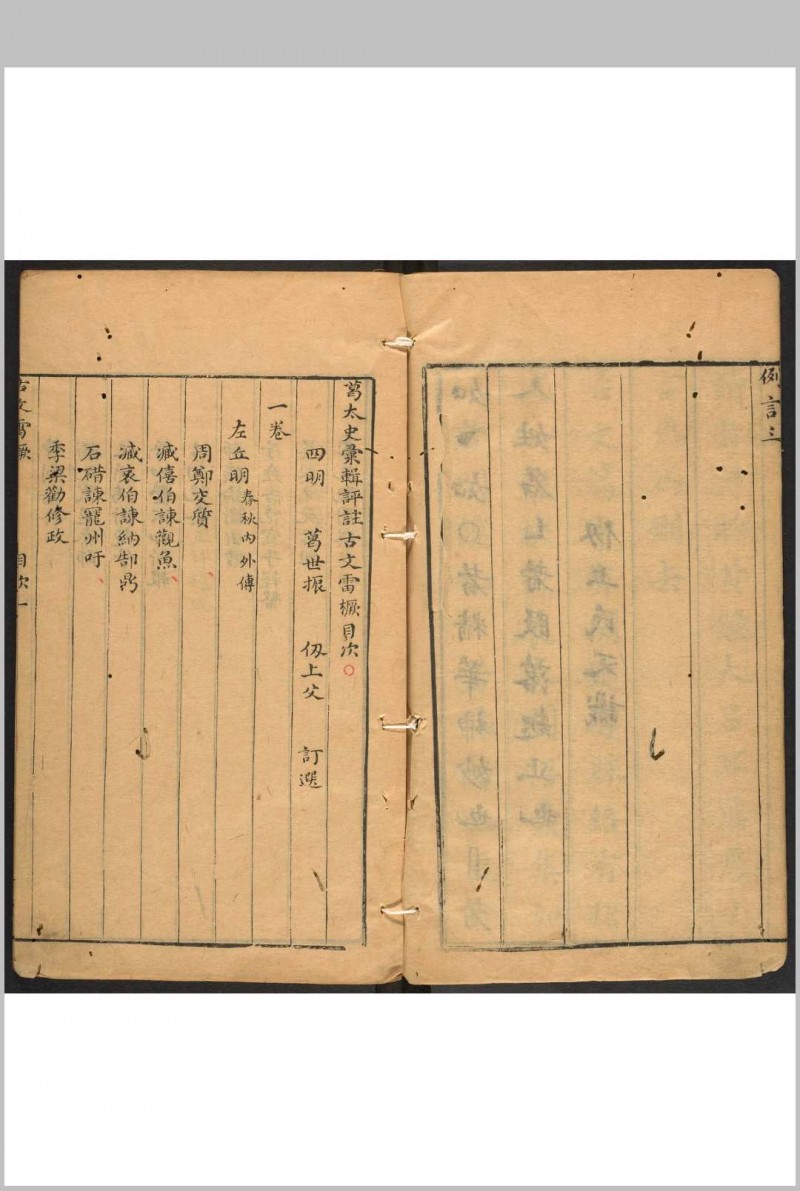 例言三
葛太史彙輯評註古文雷橛目次
四明 葛世振 仞上父 訂選
一卷
左丘明 春秋內外傳
周鄭交質
臧僖伯諫觀魚
臧哀伯諫納郜鼎
石碏諫寵州吁
季梁勸修政
古文雷橛 目次一